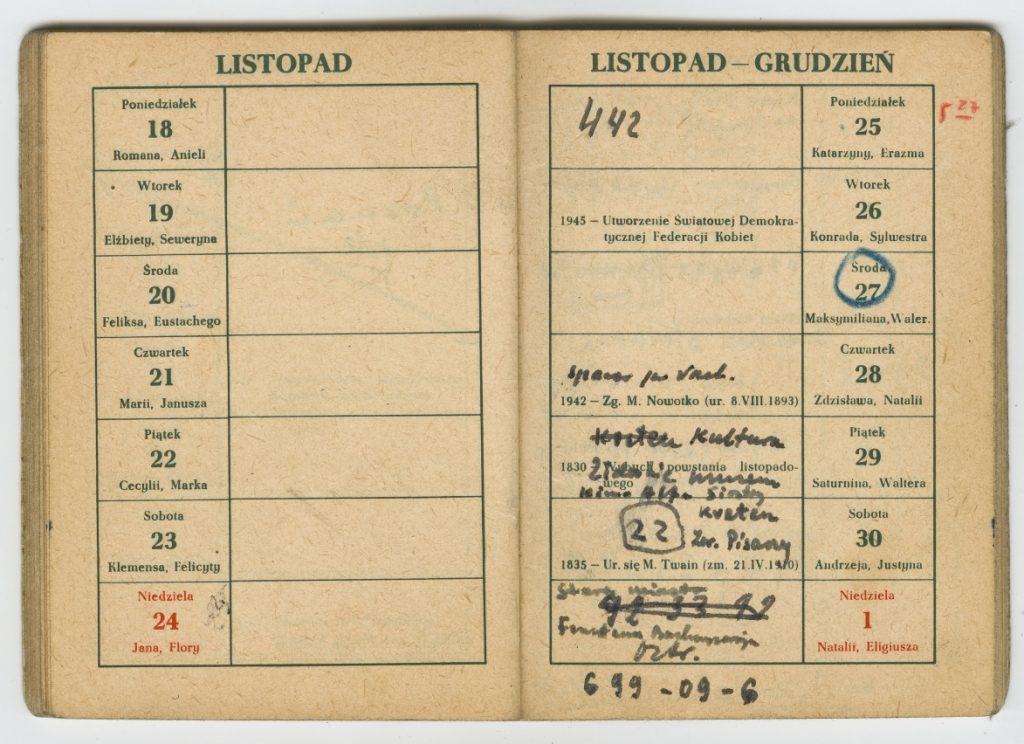 LISTOPAD
Poniedziałek
18
Romana, Anieli
Wtorek
19
Elżbiety, Seweryna
Środa
20
Feliksa, Eustachego
Czwartek
21
Marii, Janusza
Piątek
22
Cecylii, Marka
Sobota
23
Klemensa, Felicyty
Niedziela
24
Jana, Flory
LISTOPAD – GRUDZIEŃ
442
Poniedziałek
25
Katarzyny, Erazma
5 27
1945 – Utworzenie Światowej Demokra-
tycznej Federacji Kobiet
Wtorek
26
Konrada, Sylwestra
Środa
27
Maksymiliana, Waler.
1942 – Zg. M. Nowotko (ur. 8.VIII.1893)
Czwartek
28
Zdzisława, Natalii
Kultura
1830 Wybuch powstania listopado-
wego
Piątek
29
Saturnina, Waltera
22
Zw. Pisarzy
1835 – Ur. się M. Twain (zm. 21.IV.1910)
Sobota
30
Andrzeja, Justyna
Stare miasto
Niedziela
1
Natalii, Eligiusza
699-09-6